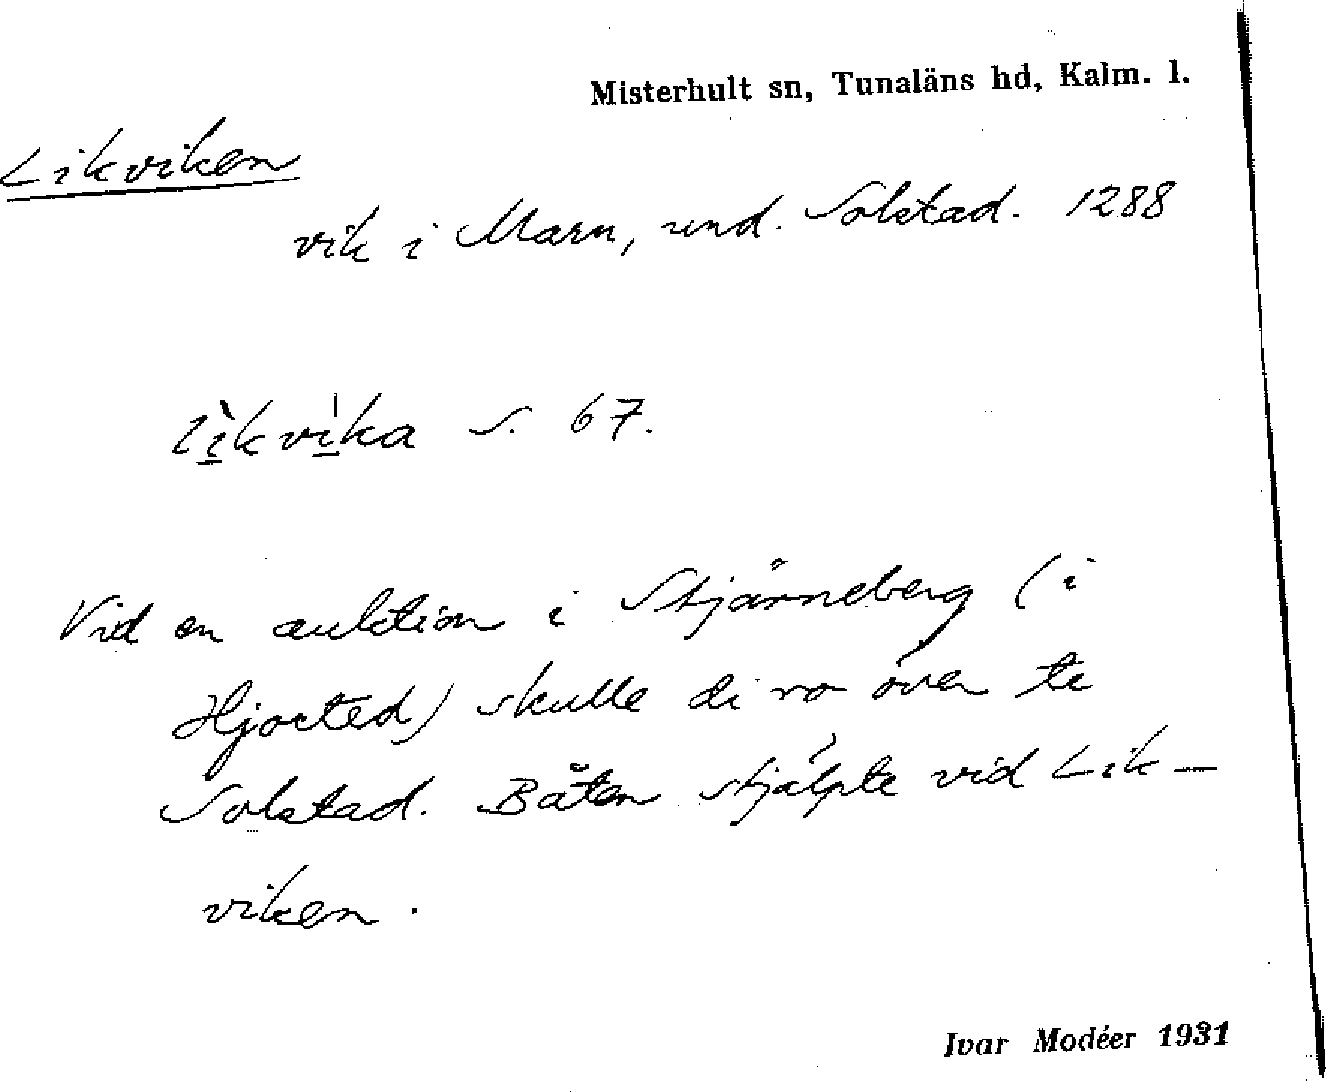 Misterhult sn, Tunaläns hd, Kalm. l.
Likviken
vik i Marn, und. Solstad. 1288
lìkvìka S. 67.
Vid en auktion i Stjärneberg (i
Hjorted) skulle di ro över te
Solstad. Båten stjälpte vid Lik-
viken.
Ivar Modéer 1931